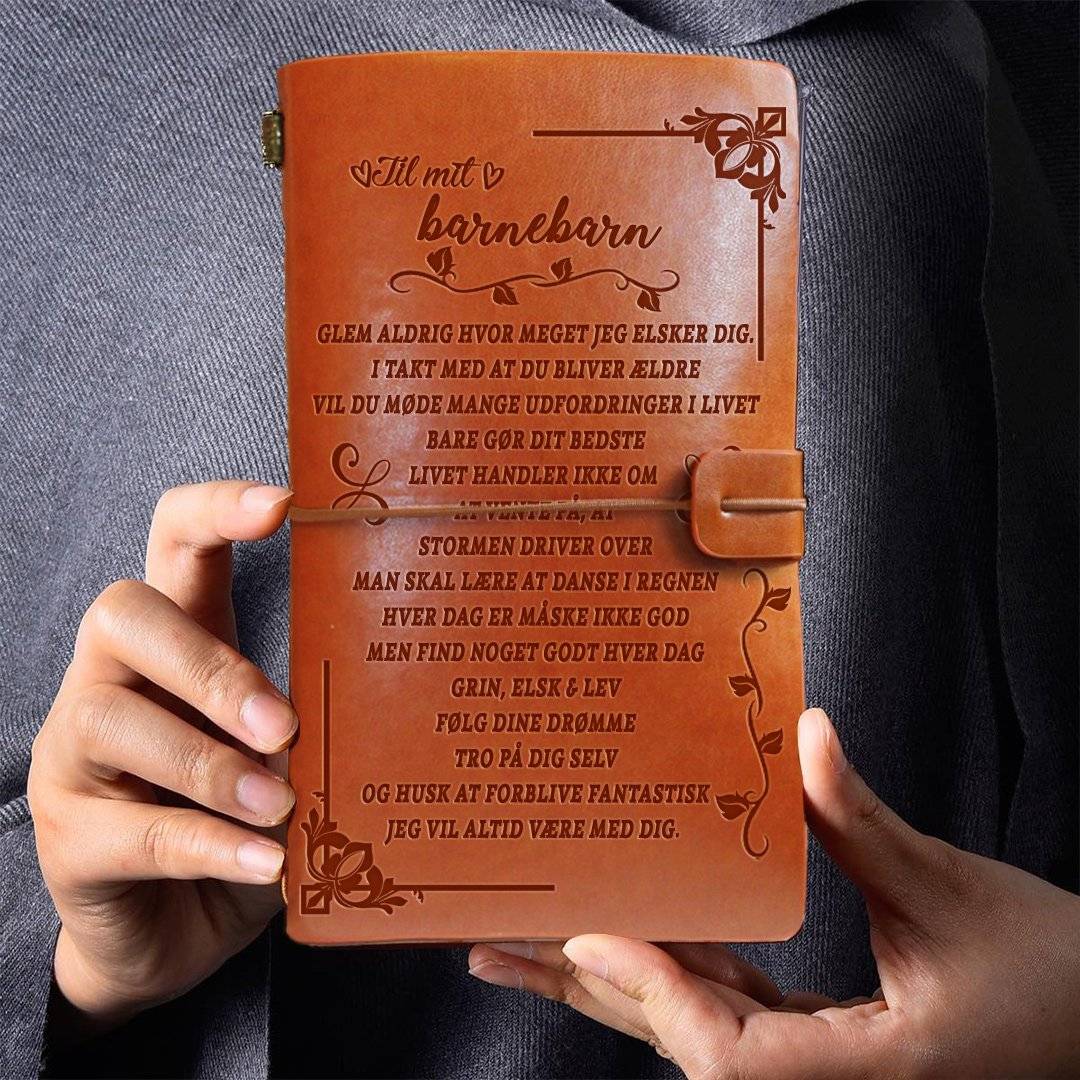 Til mit
barnebarn
GLEM ALDRIG HVOR MEGET JEG ELSKER DIG.
I TAKT MED AT DU BLIVER ÆLDRE
VIL DU MØDE MANGE UDFORDRINGER I LIVET
BARE GØR DIT BEDSTE
LIVET HANDLER IKKE OM
AT VENTE PÅ, AT
STORMEN DRIVER OVER
MAN SKAL LÆRE AT DANSE I REGNEN
HVER DAG ER MÅSKE IKKE GOD
MEN FIND NOGET GODT HVER DAG
GRIN, ELSK & LEV
FØLG DINE DRØMME
TRO PÅ DIG SELV
OG HUSK AT FORBLIVE FANTASTISK
JEG VIL ALTID VÆRE MED DIG.